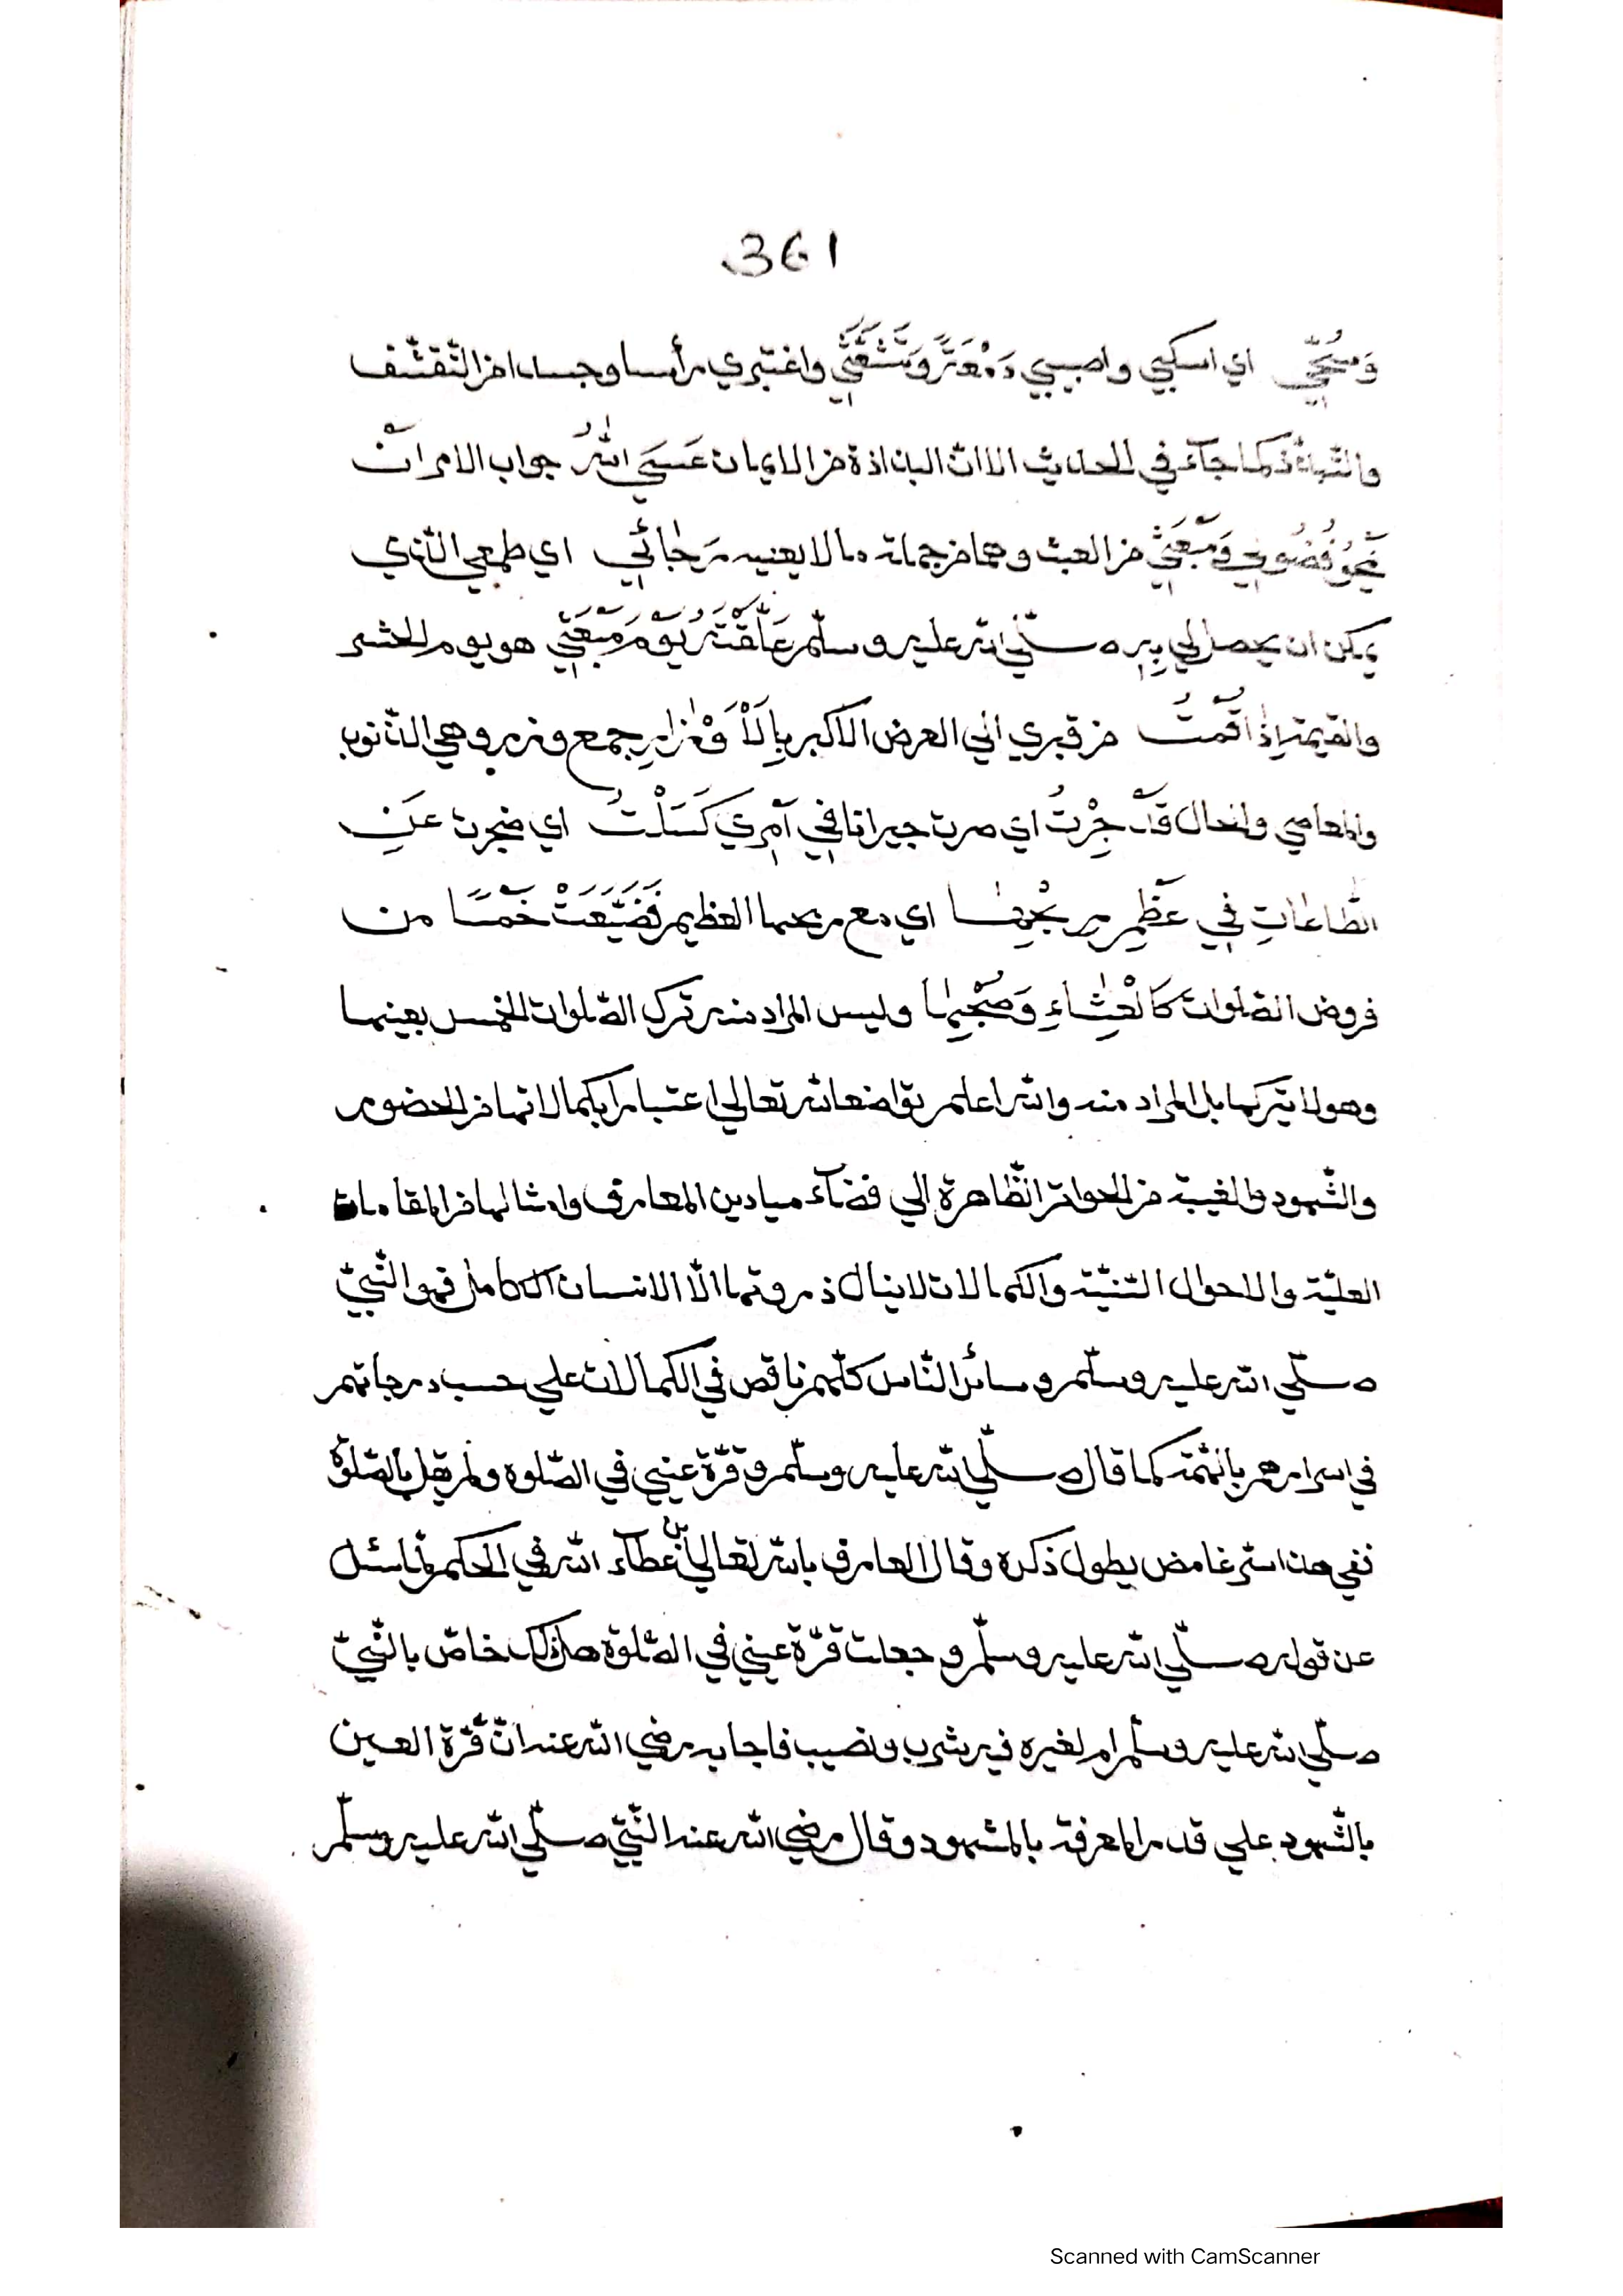 361
وَسُحِّي اي اسكبي واصببي دَمْعَةً وَتَشَعَّثِي واغتبري رأسا وجسدا من التّقشّف
والتّبذّذ كما جآء في الحديث الا انّ البذاذة من الايمان عَسَي اللّٰهُ جواب الامر انْ
يَمْحُوْ فُضُوْلِي وَمَبْعَثِي من العبث وهما من جملة ما لا يعنيه رَجٰائِي اي طمعي الّذي
يمكن ان يحصل لي بِهِ صلّي اللّه عليه وسلّم عَلَّقْتُهُ يَوْمَ مَبْعَثِي هو يوم الحشر
والقيمة إِذٰا قُمْتُ من قبري الي العرض الاكبر بِالْأَوْزٰارِ جمع وزر وهي الذّنوب
والمعاصي والحال قَدْ حِرْتُ اي صرت حيرانا فِي اَمْرِي كَسَلْتُ اي ضجرت عَنِ
الطّٰاعٰاتِ فِي عَظْمِ رِبْحِهٰا اي مع ربحها العظيم فَضَيَّعَتْ خَمْسًا من
فروض الصّلوات كَالْعِشٰاءِ وَصُبْحِهٰا وليس المراد منه ترك الصّلوات الخمس بعينها
وهو لا يتركها بل المراد منه واللّه اعلم تواضعا للّه تعالي اعتبارا بكمالاتها من الحضور
والشّهود والغيبة من الحواسّ الظّاهرة الي فضآء ميادين المعارف وامثالها من المقامات
العليّة والاحوال السّنيّة والكمالات لا ينال ذروتها الّا الانسان الكامل فهو النّبيّ
صلّي اللّه عليه وسلّم وسائر النّاس كلّهم ناقص في الكمالات علي حسب درجاتهم
في اسرارهم بائمّته كما قال صلّي اللّه عليه وسلّم وقرّة عيني في الصّلوة ولم يقل بالصّلوة
ففي هذا سرّ غامض يطول ذكره وقال العارف باللّه تعالي ابن عطآء اللّه في الحكم لمّا سئل
عن قوله صلّي اللّه عليه وسلّم وجعلت قرّة عيني في الصّلوة هل ذلك خاصّ بالنّبيّ
صلّي اللّه عليه وسلّم ام لغيره فيه شرب ونصيب فاجابه رضي اللّه عنه انّ قرّة العين
بالشّهود علي قدر المعرفة بالمشهود وقال رضي اللّه عنه النّبيّ صلّي اللّه عليه وسلّم
Scanned with CamScanner